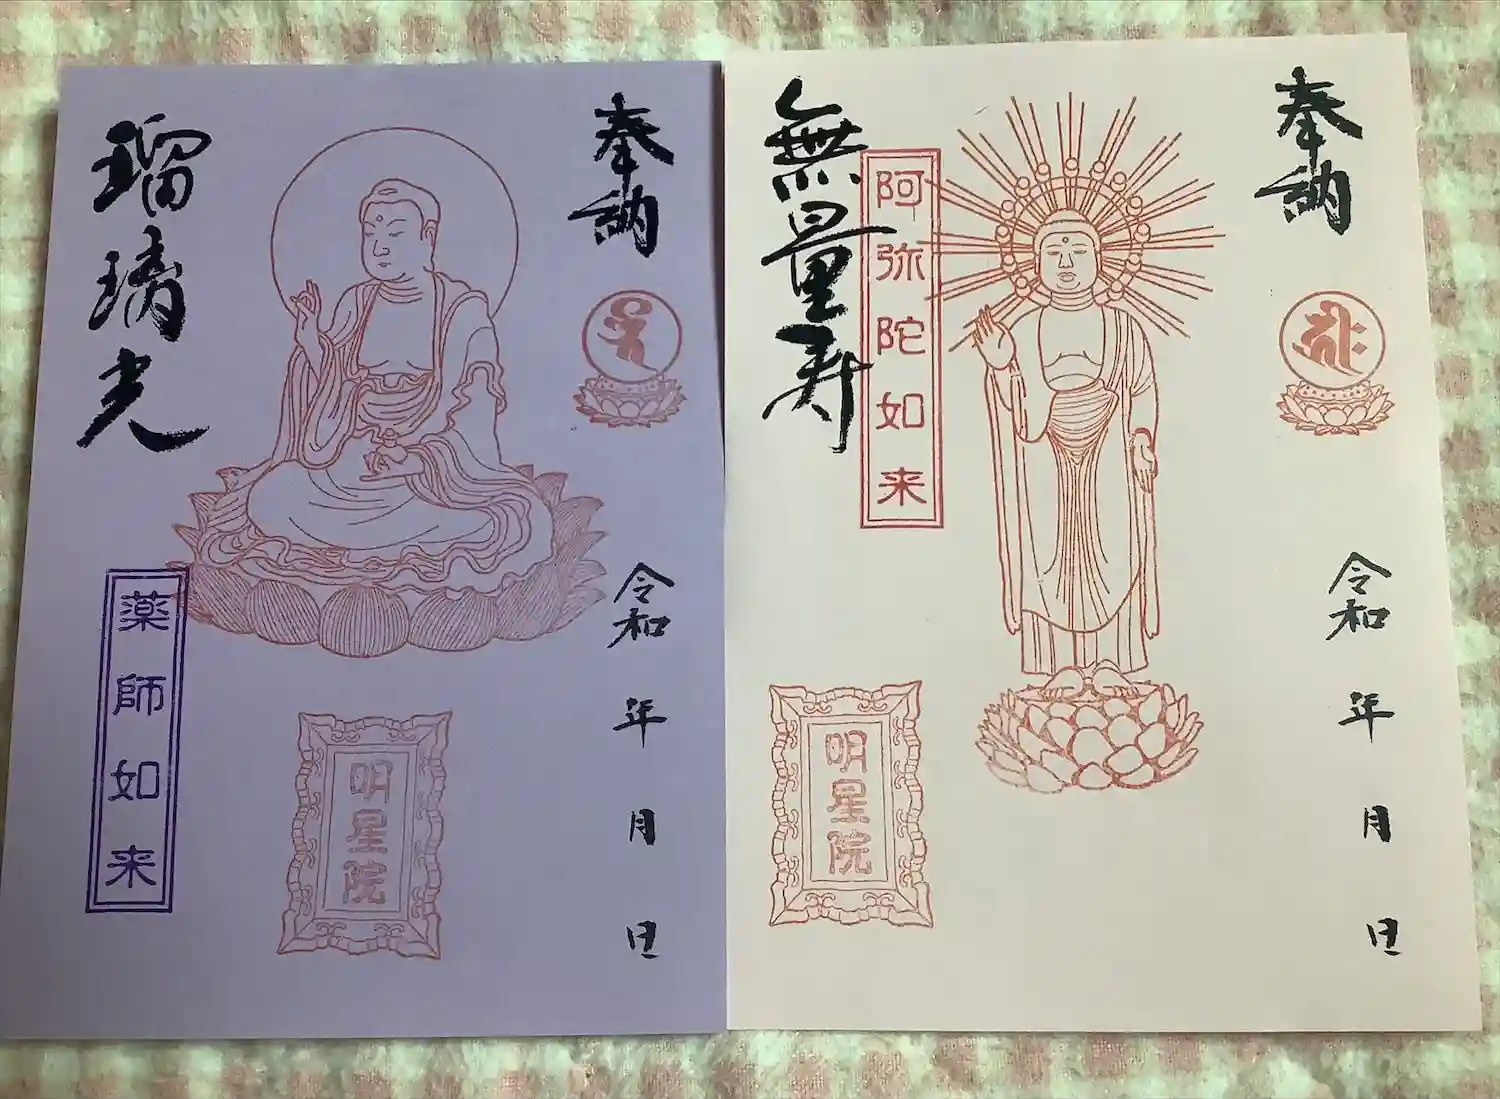 奉納
令和 年 月 日
瑠璃光
薬師如来
明星院
奉納
令和 年 月 日
無量寿
阿弥陀如来
明星院